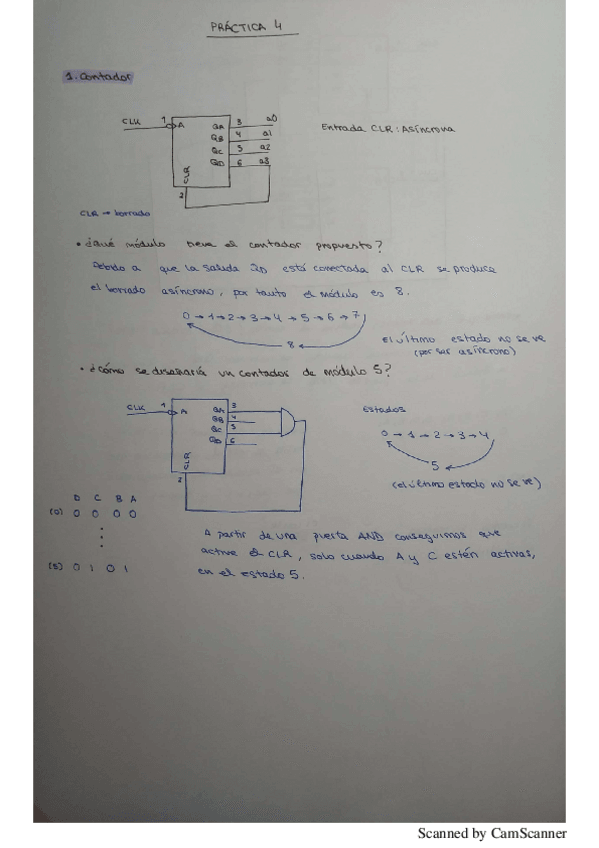 PRÁCTICA 4
1. Contador
CLK 1 A QA 3 a0
QB 4 a1
QC 5 a2
QD 6 a3
CLR
2
Entrada CLR: Asíncrona
CLR → borrado
• ¿Qué módulo tiene el contador propuesto?
Debido a que la salida QD está conectada al CLR se produce
el borrado asíncrono, por tanto el módulo es 8.
0 → 1 → 2 → 3 → 4 → 5 → 6 → 7
8
el último estado no se ve
(por ser asíncrono)
• ¿Cómo se diseñaría un contador de módulo 5?
CLK 1 A QA 3
QB 4
QC 5
QD 6
CLR
2
Estados
0 → 1 → 2 → 3 → 4
5
(el último estado no se ve)
D C B A
(0) 0 0 0 0
(5) 0 1 0 1
A partir de una puerta AND conseguimos que
active el CLR, solo cuando A y C estén activas,
en el estado 5.
Scanned by CamScanner